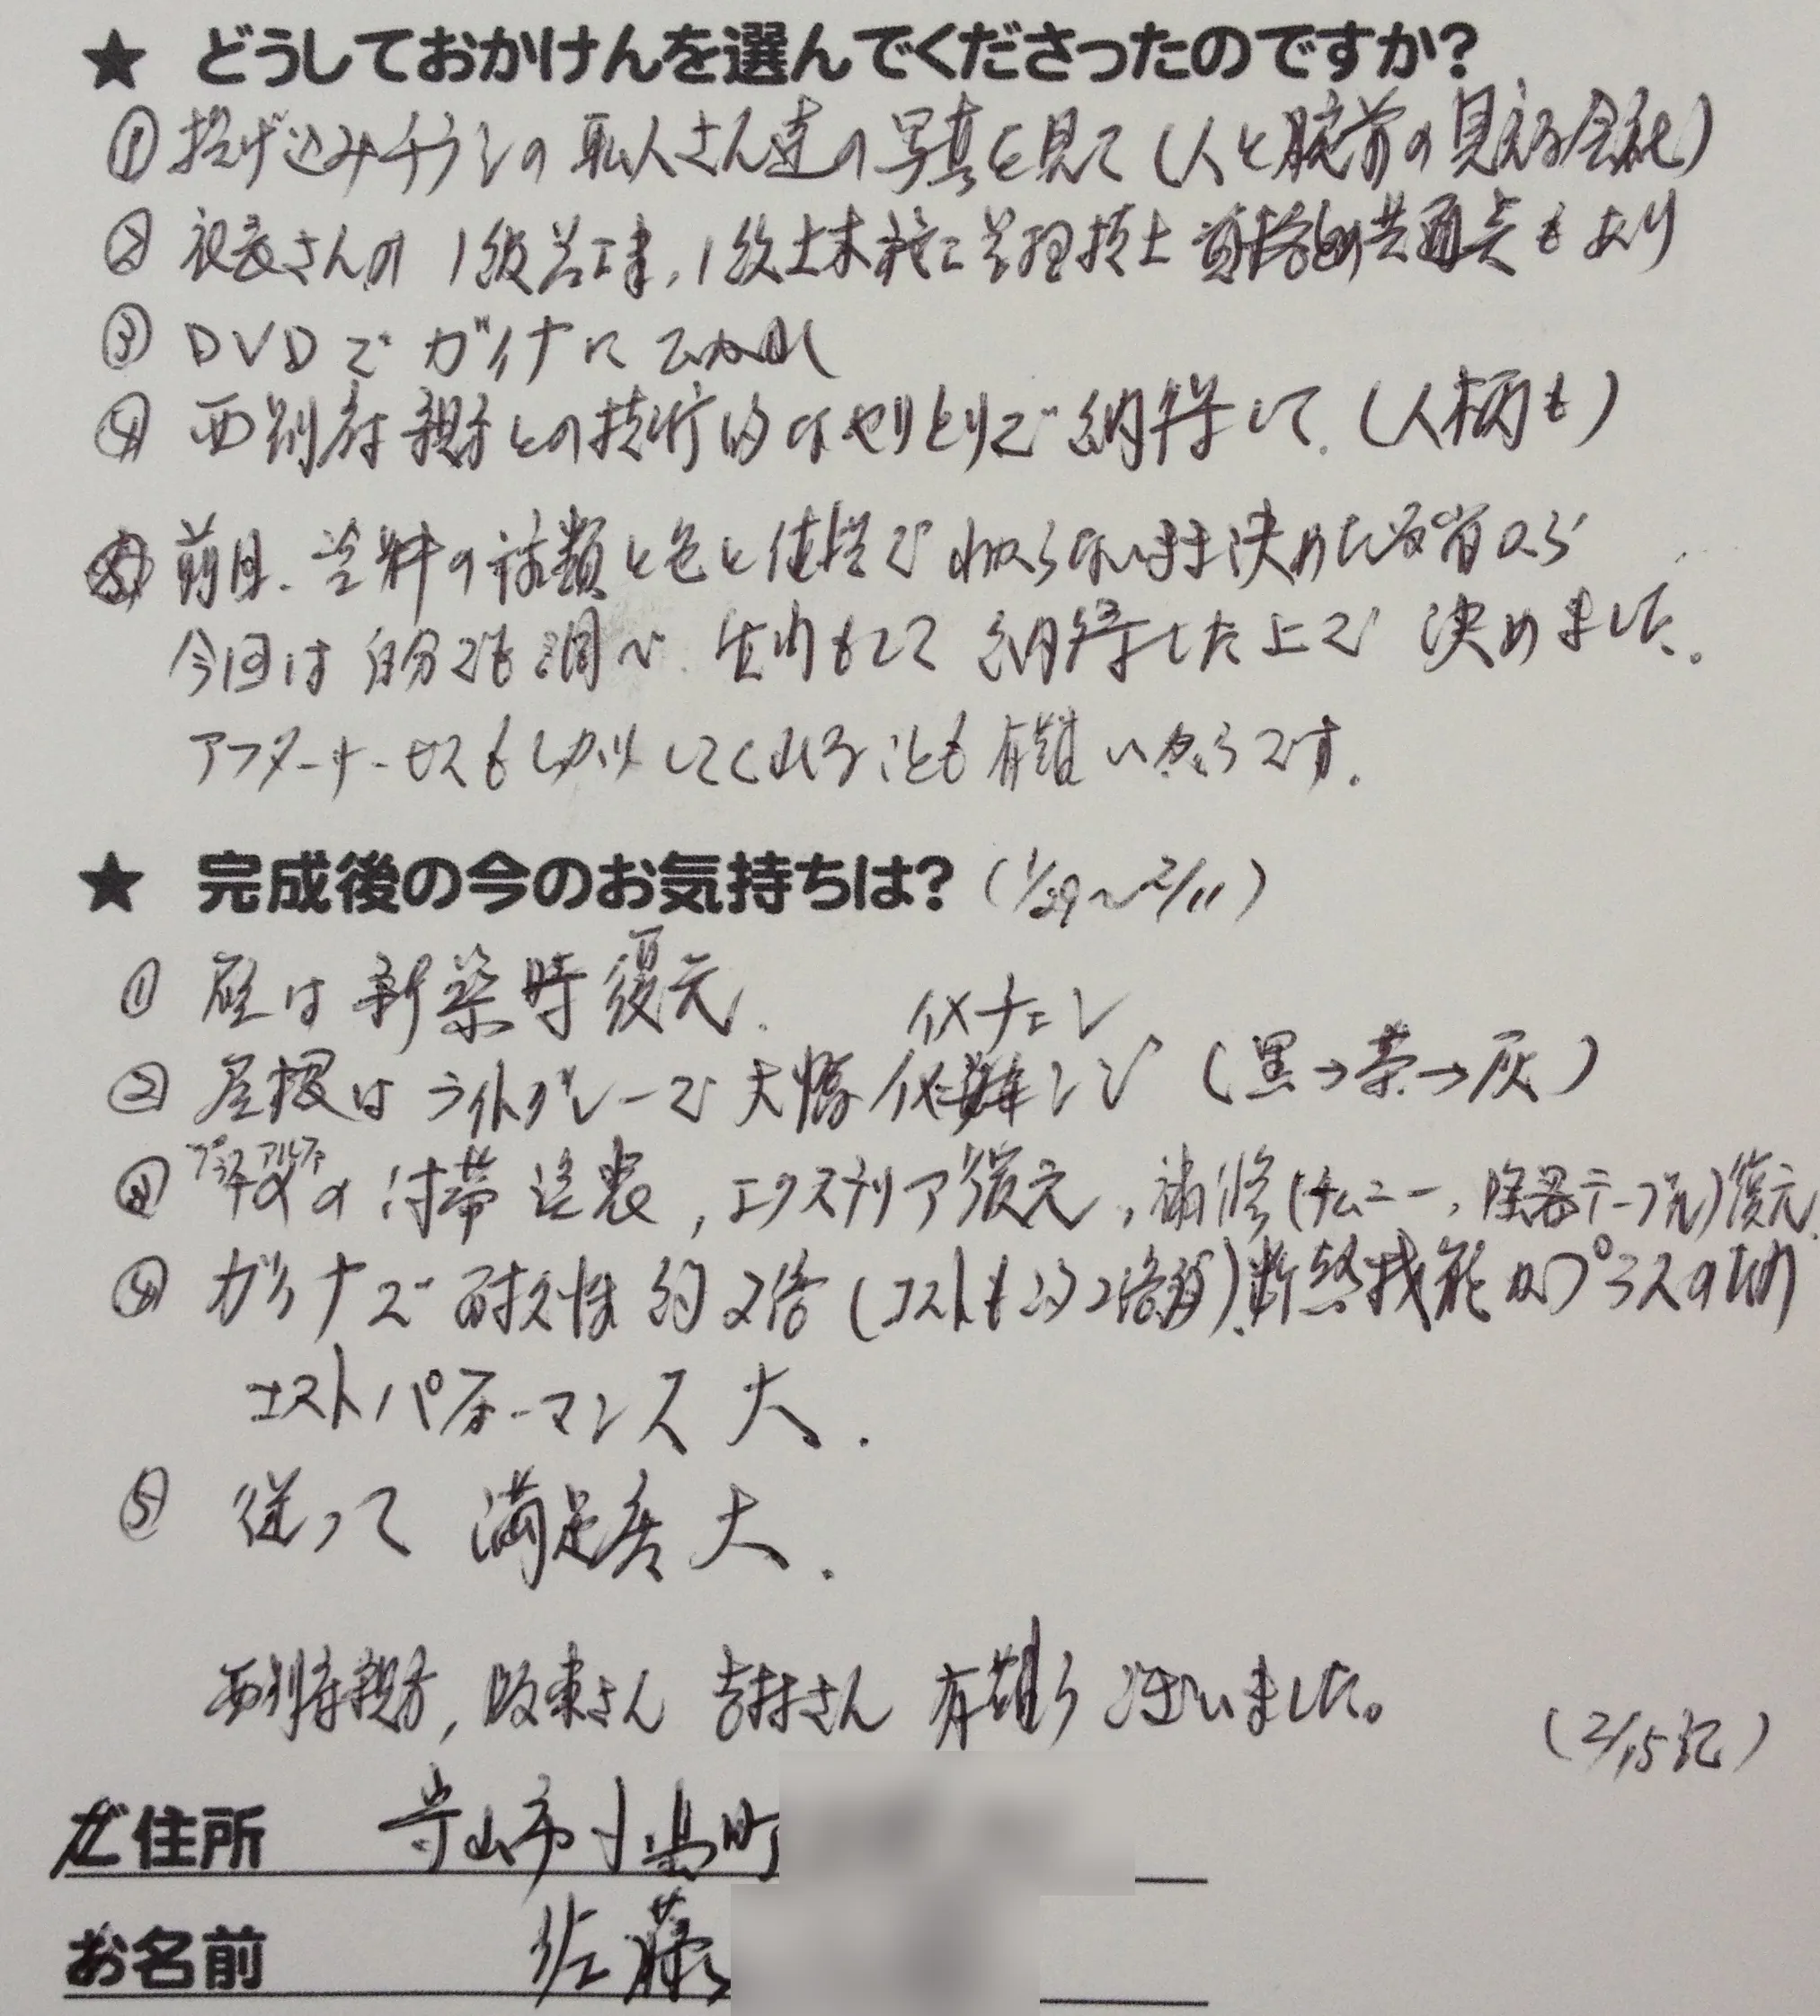 ★ どうしておかけんを選んでくださったのですか?
① 投げ込みチラシの職人さん達の写真を見て(人と腕前の見える会社)
② 社長さんの1級 1級土木施工管理技士 資格の共通点もあり
③ DVDでガイナにひかれ
④ 西別府親方との技術的なやりとりで納得して.(人柄も)
⑤ 前回、塗料の種類と色と値段でわからないまま決めた反省から
今回は自分でも調べ 納得した上で決めました。
アフターサービスもしっかりしてくれることも有難いからです.
★ 完成後の今のお気持ちは? (1/29~2/11)
① 壁は新築時復元.
イメチェン
② 屋根はライトグレーで大幅 (黒→茶→灰)
③ の付帯塗装,エクステリア復元,補修(チムニー,陶器テーブル)復元.
④ ガイナで耐久性約2倍(コストも約2倍弱).断熱機能がプラスの為
コストパフォーマンス大.
⑤ 従って 満足度大.
西別府親方,坂東さん 吉村さん 有難うございました。
(2/15記)
ご住所 守山市小島町
お名前 佐藤